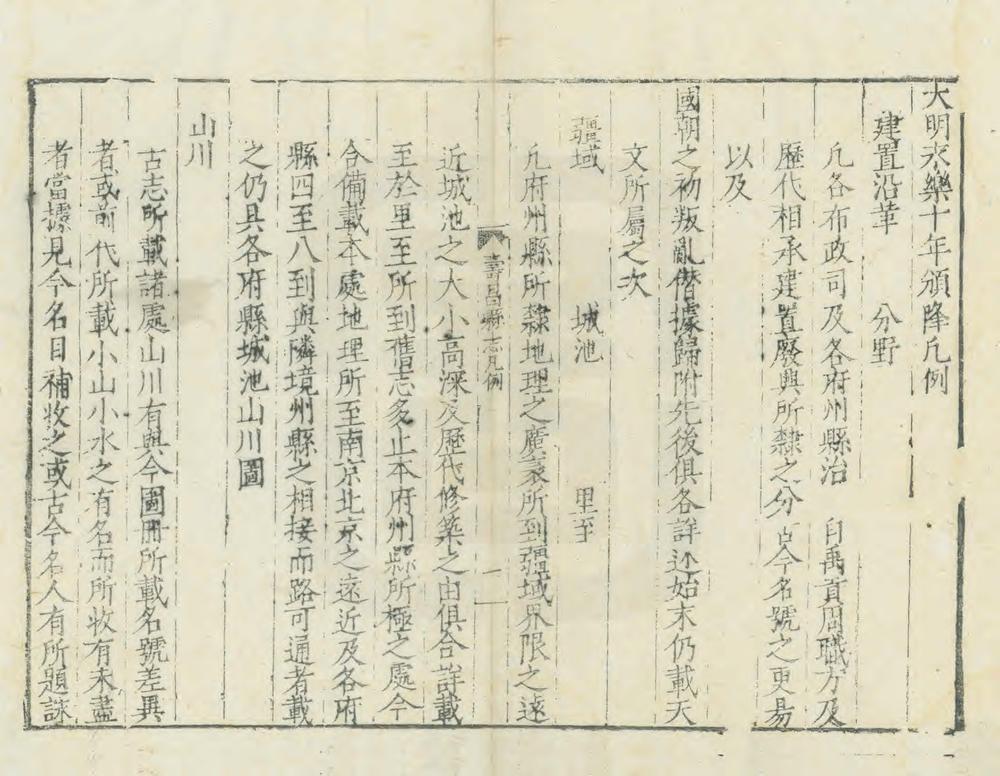 大明永樂十年頒降凡例
建置沿革　分野
凡各布政司及各府州縣治　自禹貢周職方及
歷代相承建置廢興所隸之分古今名號之更易
以及
國朝之初叛亂僭據歸附先後俱各詳述始末仍載天
文所屬之次
疆域　城池　里至
凡府州縣所隸地理之廣袤所到疆域界限之遠
壽昌縣志凡例　一
近城池之大小高深及歷代修築之由俱合詳載
至於里至所到舊志多止本府州縣所極之處今
合備載本處地理所至南京北京之遠近及各府
縣四至八到與隣境州縣之相接而路可通者載
之仍具各府縣城池山川圖
山川
古志所載諸處山川有與今圖冊所載名號差異
者或前代所載小山小水之有名而所收有未盡
者當據見今名目補收之或古今名人有所題詠